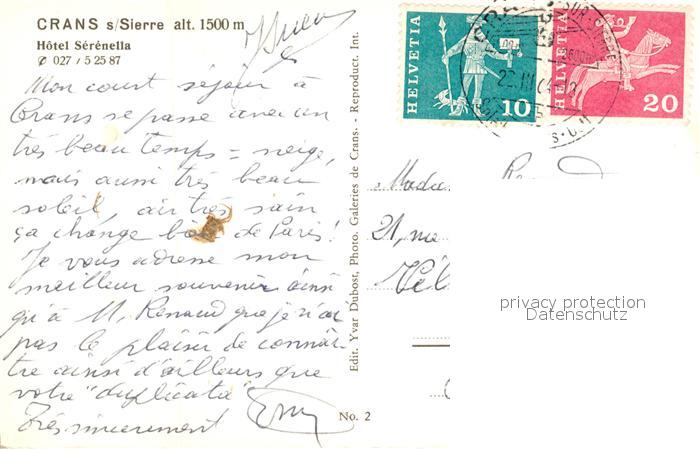 CRANS s/Sierre alt. 1500 m
Hôtel Sérénella
✆ 027 / 5 25 87
Mon court séjour à
Crans se passe avec un
très beau temps = neige,
mais aussi très beau
soleil, air très sain
ça change bien de Paris!
Je vous adresse mon
meilleur souvenir ainsi
qu'à M. Renaud que je n'ai
pas le plaisir de connaî-
tre ainsi d'ailleurs que
votre "duplicata"
Très sincèrement
Edit. Yvar Dubost, Photo. Galeries de Crans. - Reproduct. Int.
No. 2
HELVETIA 10
HELVETIA 20
Mada
21, rue
privacy protection
Datenschutz